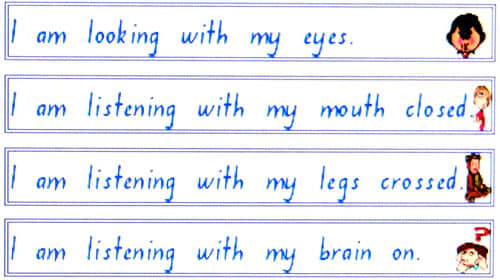 I am looking with my eyes.
I am listening with my mouth closed.
I am listening with my legs crossed.
I am listening with my brain on.